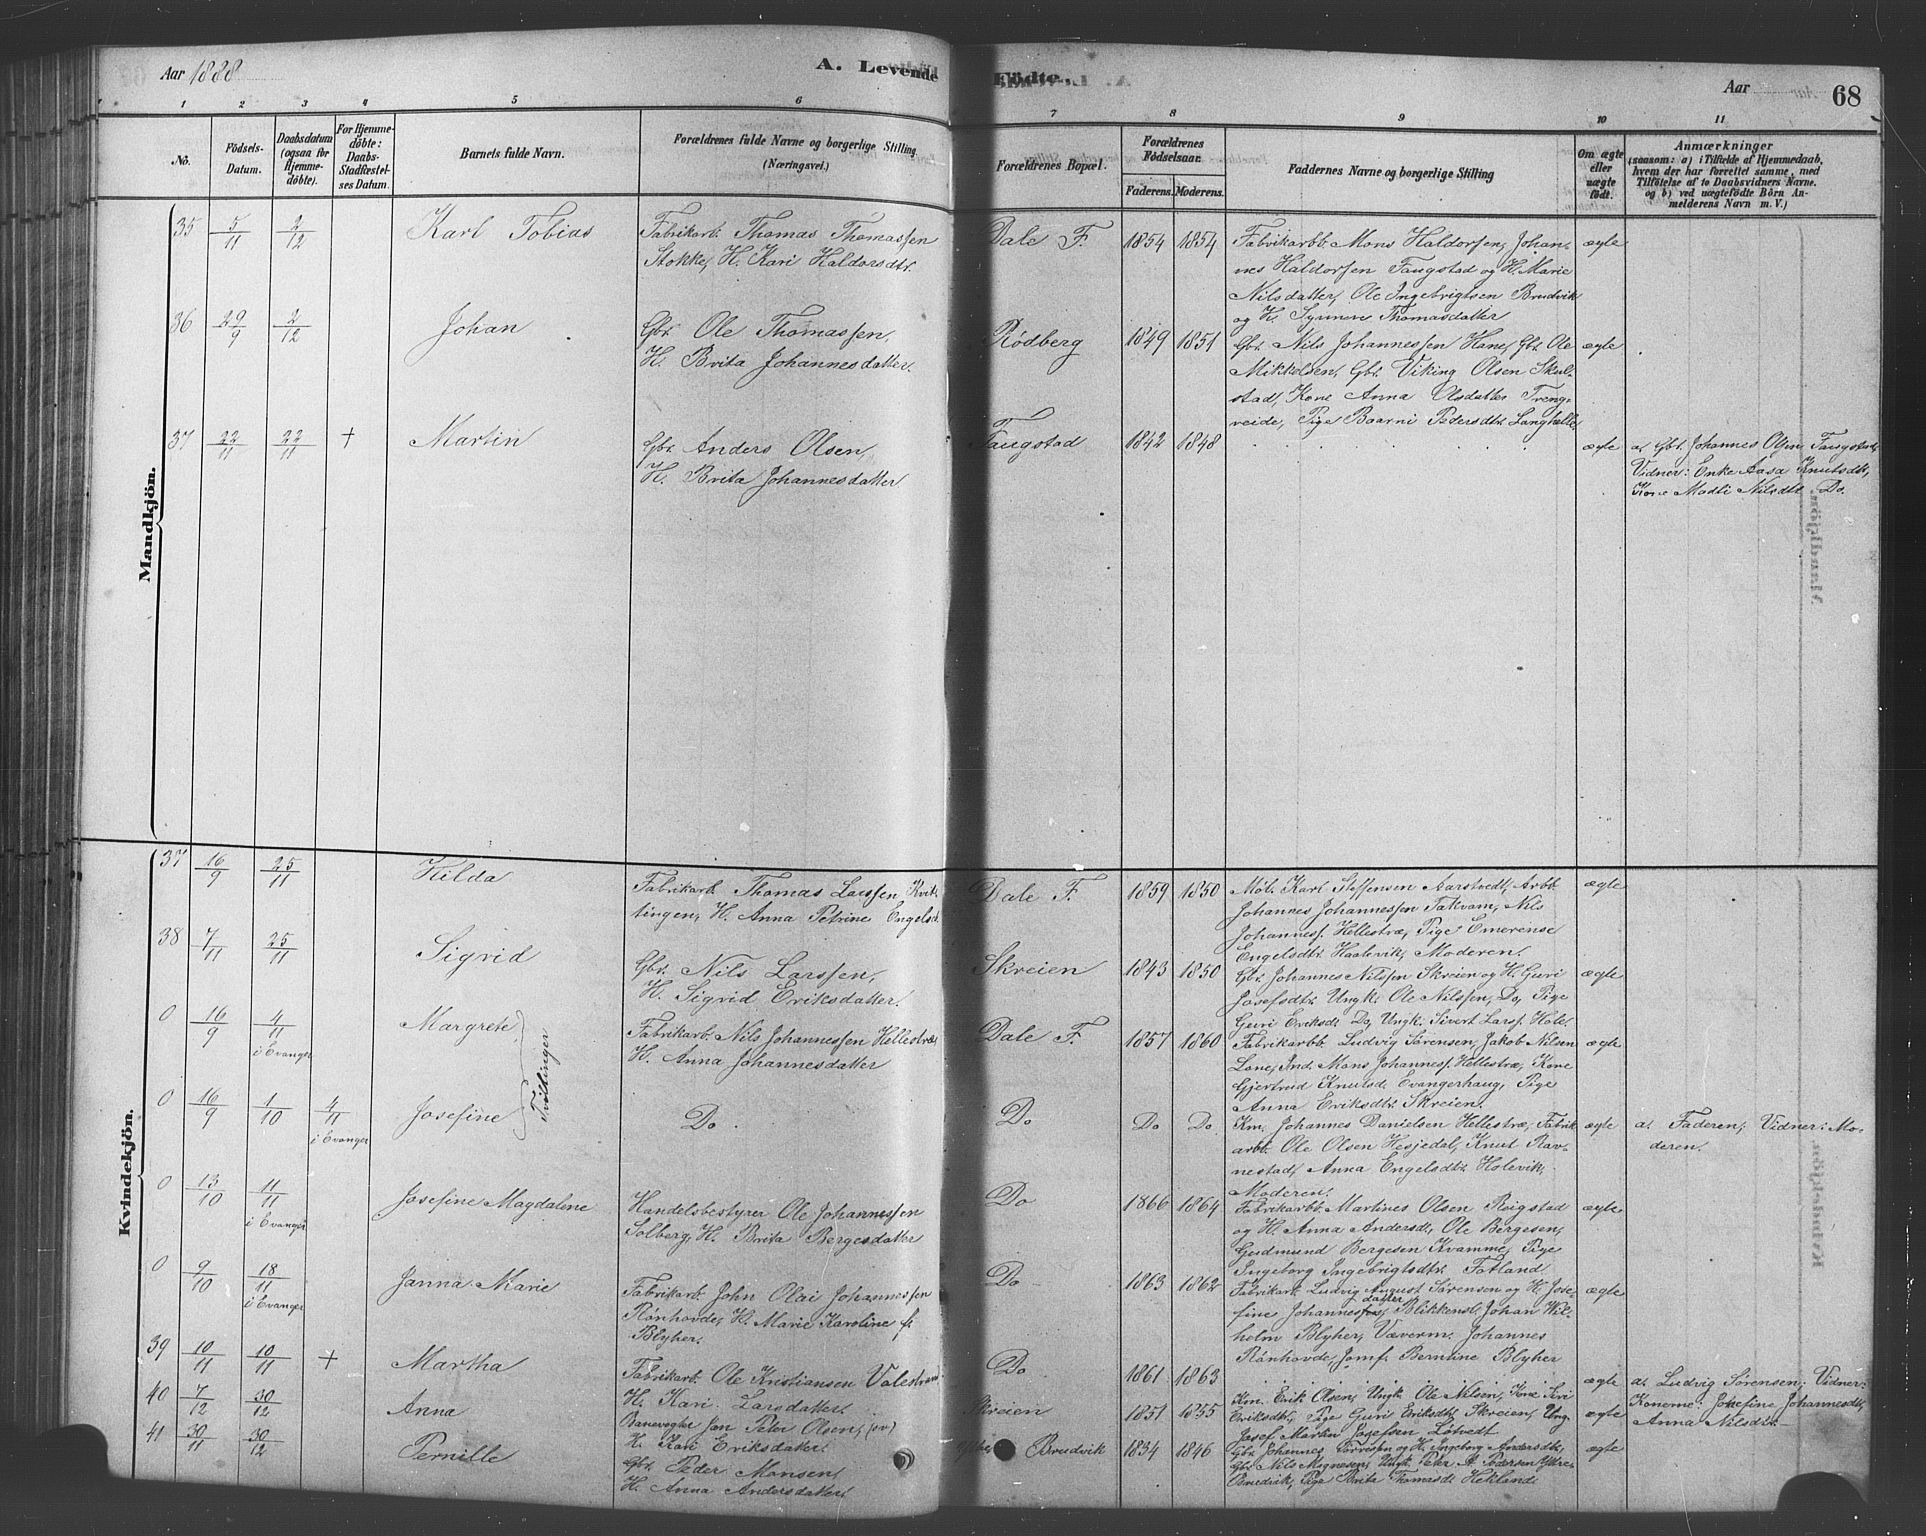 Aar 1888
A. Levende
Födte.
Aar
68
1 2 3 4 5 6 7 8 9 10 11
No.
Födsels-
Datum.
Daabsdatum
(ogsaa for
Hjemme-
döbte).
For Hjemme-
döbte:
Daabs-
Stadfæstel-
ses Datum.
Barnets fulde Navn.
Forældrenes fulde Navne og borgerlige Stilling
(Næringsvei.)
Forældrenes Bopæl.
Forældrenes
Födselsaar.
Faderens. Moderens.
Faddernes Navne og borgerlige Stilling
Om ægte
eller
uægte
födt.
Anmærkninger
(saasom: a) i Tilfælde af Hjemmedaab,
hvem der har forrettet samme, med
Tilföielse af to Daabsvidners Navne.
og b) ved uægtefödte Börn An-
melderens Navn m. V.)
Mandkjön.
35 5/11 2/12 Karl Tobias
Fabrikarb. Thomas Thomassen
Stokke, H. Kari Haldorsdtr.
Dale F. 1854 1854
Fabrikarbb. Mons Haldorsen, Johan-
nes Haldorsen Faugstad og H. Marie
Nilsdatter, Ole Ingebrigtsen Brudvik
og H. Synneve Thomasdatter
ægte
36 29/9 2/12 Johan
Gbr. Ole Thomassen,
H. Brita Johannesdatter.
Rödberg 1849 1851
Gbr. Nils Johannessen Hane, Gbr. Ole
Mikkelsen, Gbr. Viking Olsen Skul-
stad, Kone Anna Olsdatter Treng-
reide, Pige Baarni Pedersdtr. Langhelle.
ægte
37 22/11 22/11 + Martin
Gbr. Anders Olsen,
H. Brita Johannesdatter.
Faugstad 1842 1848
ægte
a. Gbr. Johannes Olsen Faugstad,
Vidner: Enke Aasa Knutsdtr,
Kone Madli Nilsdtr. Do.
Kvindekjön.
37 16/9 25/11 Hilda
Fabrikarb. Thomas Larssen Kvit-
tingen, H. Anna Petrine Engelsd.
Dale F. 1859 1850
Möb. Karl Steffensen Aarstvedt, Arbb.
Johannes Johannessen Takvam, Nils
Johanness. Hellestræ, Pige Emerense
Engelsdtr. Haalevik, Moderen.
ægte
38 7/11 25/11 Sigrid
Gbr. Nils Larssen,
H. Sigrid Eriksdatter.
Skreien 1843 1850
Gbr. Johannes Nilssen Skreien og H. Guri
Josefsdtr. Ungk. Ole Nilssen, Do, Pige
Guri Eriksd. Do, Ungk. Sivert Larss. Hole.
ægte
0 16/9 4/11 i Evanger Margrete
Tvillinger
Fabrikarb. Nils Johannessen Hellestræ,
H. Anna Johannesdatter
Dale F. 1857 1860
Fabrikarbb. Ludvig Sörensen, Jakob Nilsen
Lone, Ind. Mons Johanness. Hellestræ, Kone
Gjertrud Knutsd. Evangerhaug, Pige
Anna Eriksdtr. Skreien.
ægte
0 16/9 1/10 4/11 i Evanger Josefine
Do.
Do Do Do.
Km. Johannes Danielsen Hellestræ, Fabrik
arbb. Ole Olsen Hesjedal, Knut Rav-
nestad, Anna Engelsdtr. Holevik,
Moderen.
ægte
a. Faderen, Vidner: Mo-
deren.
0 13/10 11/11 i Evanger Josefine Magdalene
Handelsbestyrer Ole Johannessen
Solberg, H. Brita Bergesdatter
Do 1866 1864
Fabrikarbb. Martines Olsen Reigstad
og H. Anna Andersd, Ole Bergesen,
Gudmund Bergesen Kvamme, Pige
Ingeborg Ingebrigtsdtr. Fotland
ægte
0 9/10 18/11 i Evanger Janna Marie
Fabrikarb. John Olai Johannessen
Rönhovde, H. Marie Karoline f.
Blyher.
Do 1863 1862
Fabrikarb. Ludvig August Sörensen og H. Jose-
fine Johannesdatter, Blikkensl. Johan Wil-
helm Blyher, Væverm. Johannes
Rönhovde, Jomf. Berntine Blyher
ægte
39 10/11 10/11 + Martha
Fabrikarb. Ole Kristiansen Valestrand
H. Kari Larsdatter.
Do 1861 1863
ægte
a. Ludvig Sörensen, Vidner:
Konerne: Josefine Johannesdtr,
Anna Nilsdtr.
40 7/12 30/12 Anna
Banevogter Jon Peter Olsen,
H. Kari Eriksdatter.
Skreien 1851 1855
Km. Erik Olsen, Ungk. Ole Nilsen, Kone
Eriksdtr, Pige Guri Eriksdtr. Skreien, Ung.
Josef Martin Josefsen Lötvedt
ægte
41 30/11 30/12 Pernille
Gbr. Peder Monsen,
H. Anna Andersdatter.
Brudvik 1834 1846
Gbr. Johannes Torresen og H. Ingeborg Andersdtr,
Gbr. Nils Magnesen, Ungk. Peter A. Pedersen Yttre
Brudvik, Pige Brita Thomasd. Hekland
ægte